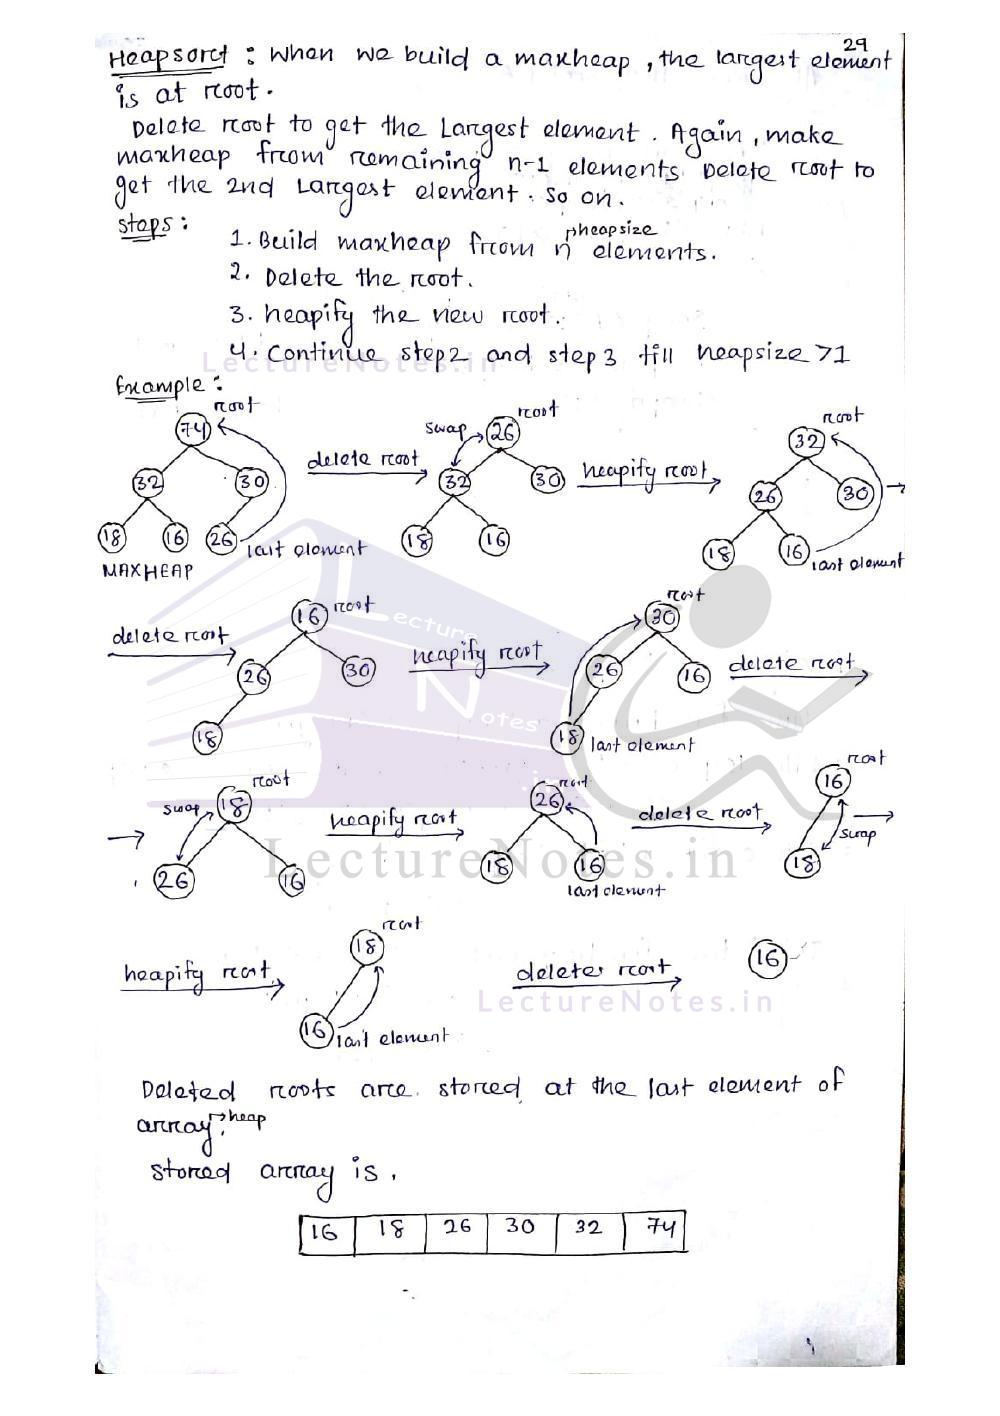 29
Heapsort : When we build a maxheap, the largest element
is at root.
Delete root to get the Largest element. Again, make
maxheap from remaining n-1 elements. Delete root to
get the 2nd Largest element. So on.
Steps :
→heapsize
1. Build maxheap from n elements.
2. Delete the root.
3. heapify the new root.
4. Continue step2 and step3 till heapsize >1
LectureNotes.in
Example :
root
74
32 30
18 16 26
last element
MAXHEAP
delete root
root
swap 26
32 30
18 16
heapify root
root
32
26 30
18 16
last element
delete root
16 root
26 30
18
heapify root
root
30
26 16
18 last element
delete root
root
swap 18
26 16
heapify root
root
26
18 16
last element
delete root
root
16
swap
18
Lecture
Notes
.in
LectureNotes.in
heapify root
root
18
16 last element
deletes root
16
LectureNotes.in
Deleted roots are stored at the last element of
array. →heap
stored array is,
16 18 26 30 32 74